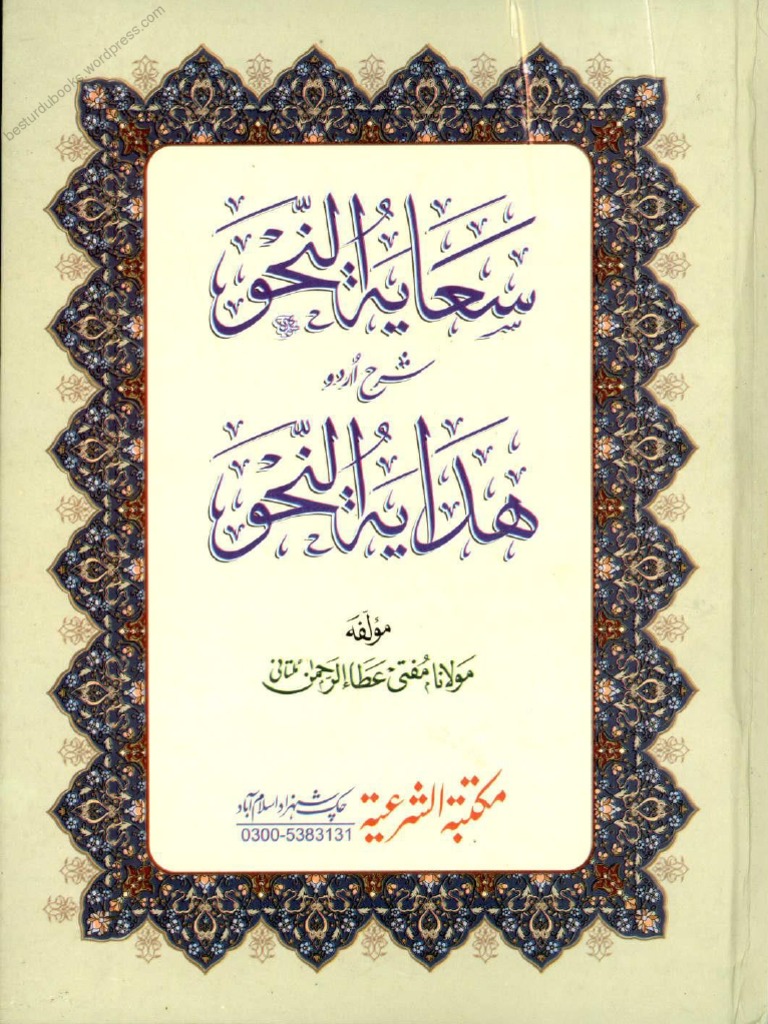 besturdubooks.wordpress.com
سعایة النحو
شرح اُردو
هدایة النحو
مؤلفہ
مولانا مفتی عطاء الرحمٰن ملتانی
مکتبة الشرعیة چک شہزاد اسلام آباد
0300-5383131